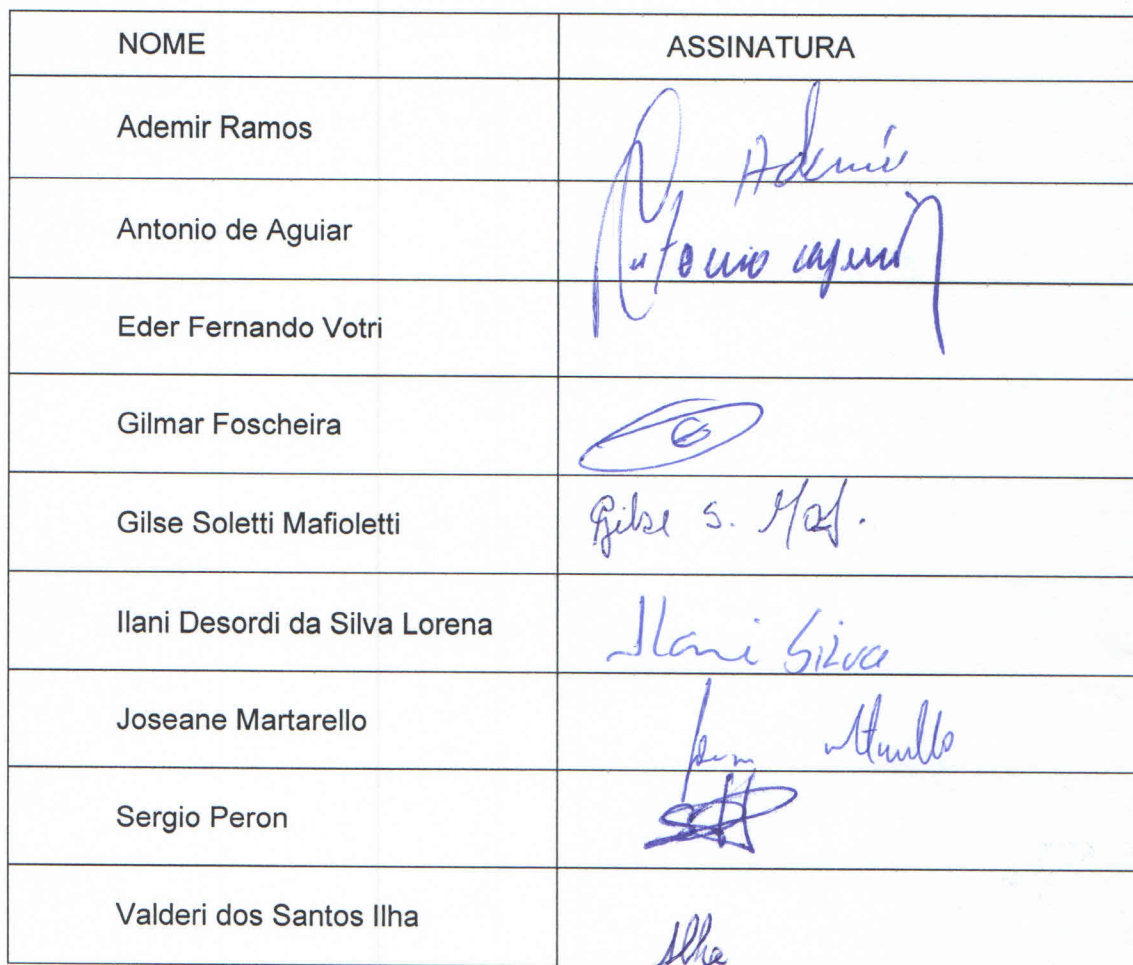 NOME ASSINATURA
Ademir Ramos Ademir
Antonio de Aguiar Antonio
Eder Fernando Votri
Gilmar Foscheira
Gilse Soletti Mafioletti Gilse S. Maf.
Ilani Desordi da Silva Lorena Ilani Silva
Joseane Martarello
Sergio Peron
Valderi dos Santos Ilha Ilha